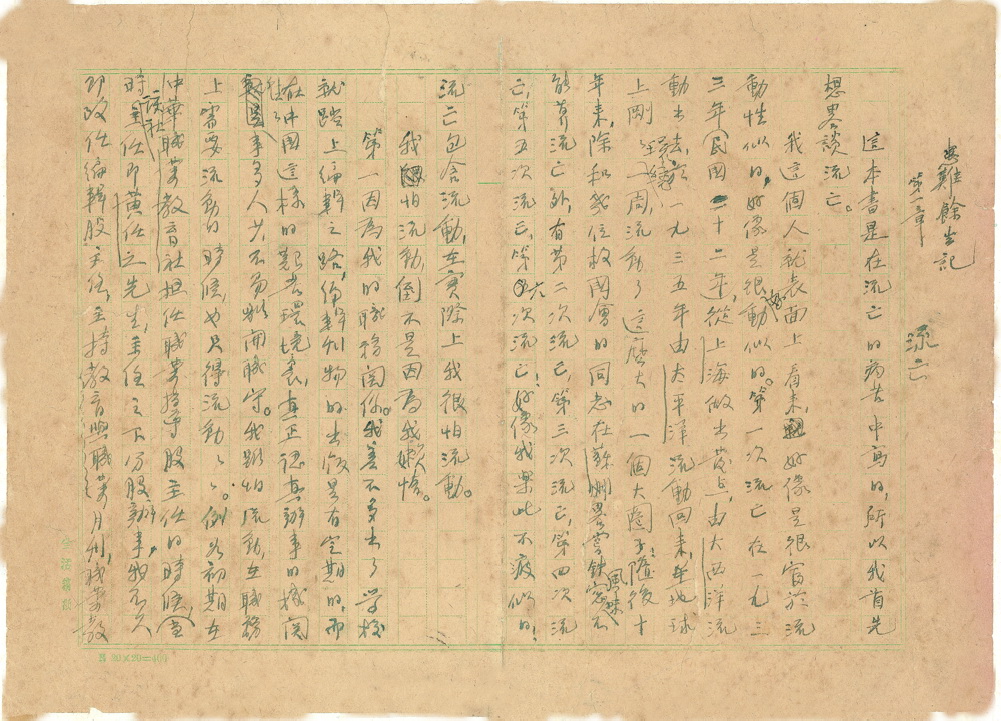 患難餘生記
第一章
流亡
這本書是在流亡的痛苦中寫的，所以我首先
想畧談流亡。
我這個人就表面上看來，好像是很富於流
動性似的，好像是很好動似的。第一次流亡在一九三
三年（民國二十二年），從上海做出發點，由大西洋流
動出去，於一九三五年由太平洋流動回來，在地球
上剛剛繞了一周，流動了這麼大的一個大圈子；隨後十
年來，除和幾位救國會的同志在蘇州畧嘗鐵窗風味不
能算流亡外，有第二次流亡，第三次流亡，第四次流
亡，第五次流亡，第六次流亡！好像我樂此不疲似的！
流亡包含流動，在實際上我很怕流動。
我怕流動，倒不是因為我懶惰。
第一因為我的職務關係。我差不多出了學校
就踏上編輯之路，編輯刊物的出版是有定期的，而
在中國這樣的艱苦環境裏，真正認真辦事的機關
事多人少，不易離開職守。我雖怕流動，在職務
上需要流動的時候，也只得流動流動。例如初期在
中華職業教育社担任職業指導股主任的時候（當
時該社主任即黃任之先生，主任之下分股辦事，我不久
即改任編輯股主任，主持教育與職業月刊，職業教
生活書店
20×20=400